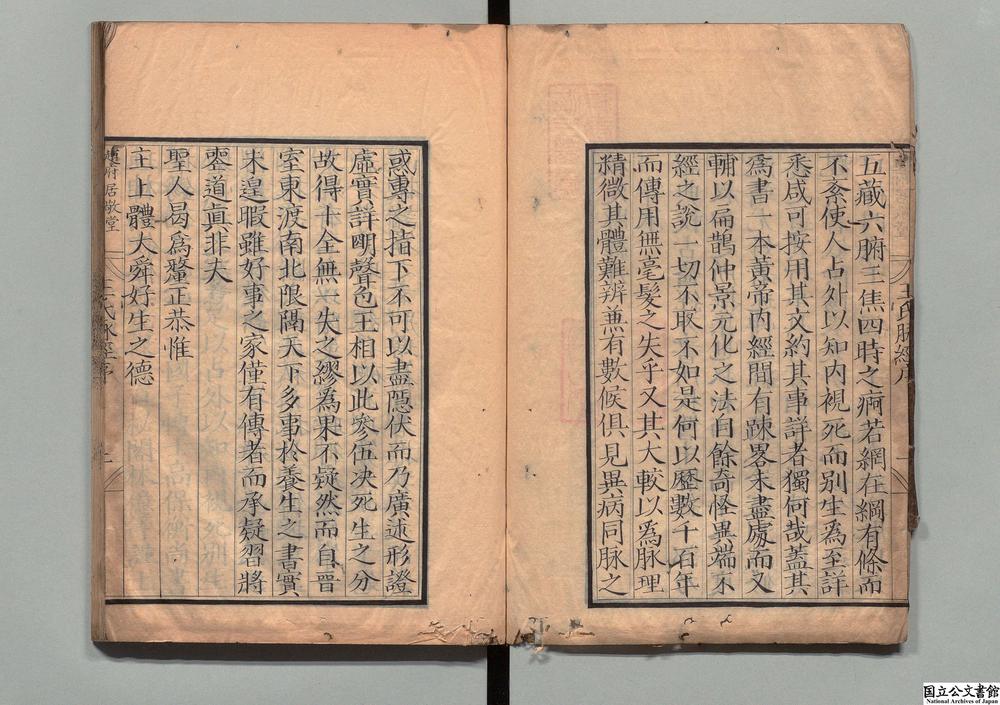 五藏六腑三焦四時之痾若網在綱有條而
不紊使人占外以知内視死而别生為至詳
悉咸可按用其文約其事詳者獨何哉蓋其
為書一本黄帝内經間有踈畧未盡處而又
輔以扁鵲仲景元化之法自餘奇怪異端不
經之説一切不取不如是何以歷數千百年
而傳用無毫髮之失乎又其大較以為脉理
精微其體難辨兼有數候俱見異病同脉之
惑專之指下不可以盡隱伏而乃廣述形證
虛實詳明聲色王相以此參伍决死生之分
故得十全無一失之繆為果不疑然而自晉
室東渡南北限隔天下多事於養生之書實
未遑暇雖好事之家僅有傳者而承疑習將
喪道真非夫
聖人曷為釐正恭惟
主上體大舜好生之德
居敬堂
王氏脉經序
王氏脉經序
国立公文書館
National Archives of Japan